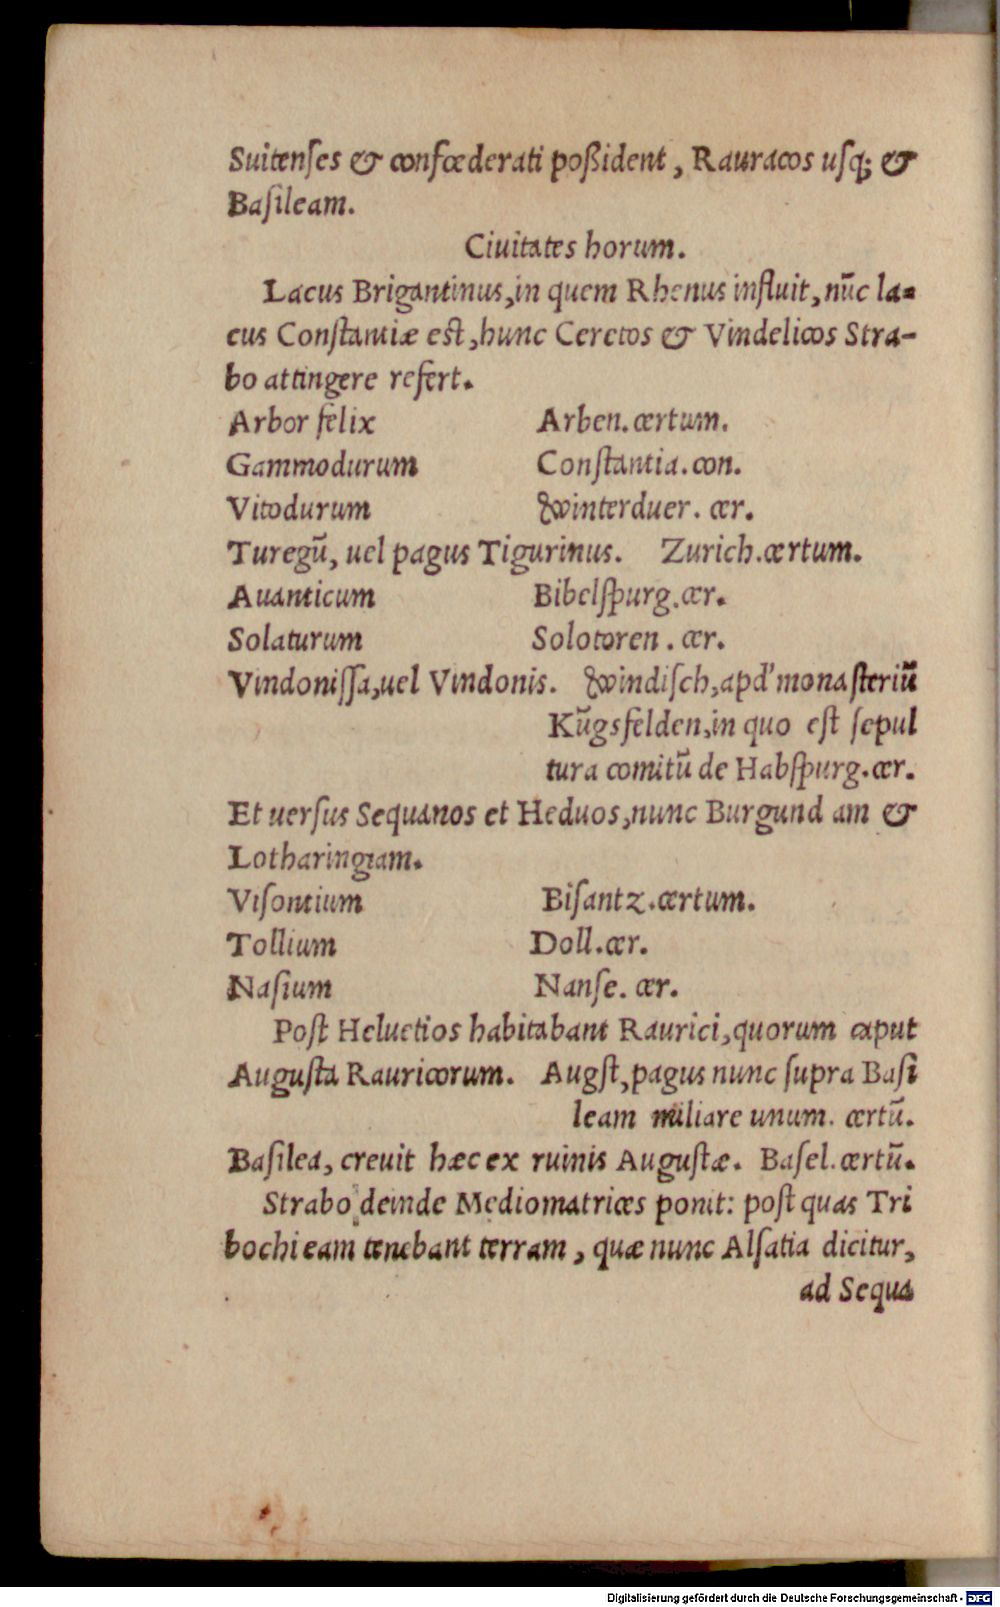 Suitenſes & confœderati poßident, Rauracos uſq; &
Baſileam.
Ciuitates horum.
Lacus Brigantinus, in quem Rhenus influit, nūc la=
cus Conſtantiæ eſt, hunc Ceretos & Vindelicos Stra-
bo attingere refert.
Arbor felix Arben. certum.
Gammodurum Conſtantia. con.
Vitodurum Winterduer. cer.
Turegū, uel pagus Tigurinus. Zurich. certum.
Auanticum Bibelſpurg. cer.
Solaturum Solotoren. cer.
Vindoniſſa, uel Vindonis. Windiſch, apd' monaſteriū
Kūgsfelden, in quo eſt ſepul
tura comitū de Habſpurg. cer.
Et uerſus Sequanos et Heduos, nunc Burgund am &
Lotharingiam.
Viſontium Biſantz. certum.
Tollium Doll. cer.
Naſium Nanſe. cer.
Poſt Heluetios habitabant Raurici, quorum caput
Auguſta Rauricorum. Augſt, pagus nunc ſupra Baſi
leam miliare unum. certū.
Baſilea, creuit hæc ex ruinis Auguſtæ. Baſel. certū.
Strabo deinde Mediomatrices ponit: poſt quas Tri
bochi eam tenebant terram, quæ nunc Alſatia dicitur,
ad Sequa
Digitalisierung gefördert durch die Deutsche Forschungsgemeinschaft - DFG